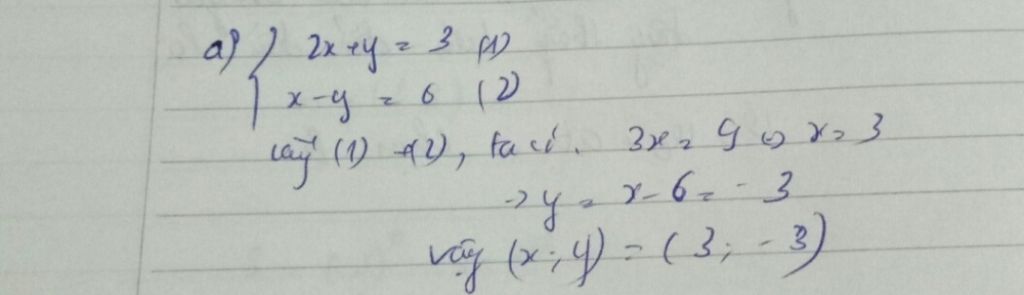 a) { 2x+y = 3 (1)
x-y = 6 (2)
Lấy (1) +(2), ta có. 3x = 9 ⇔ x = 3
→ y = x-6 = -3
Vậy (x; y) = (3; -3)